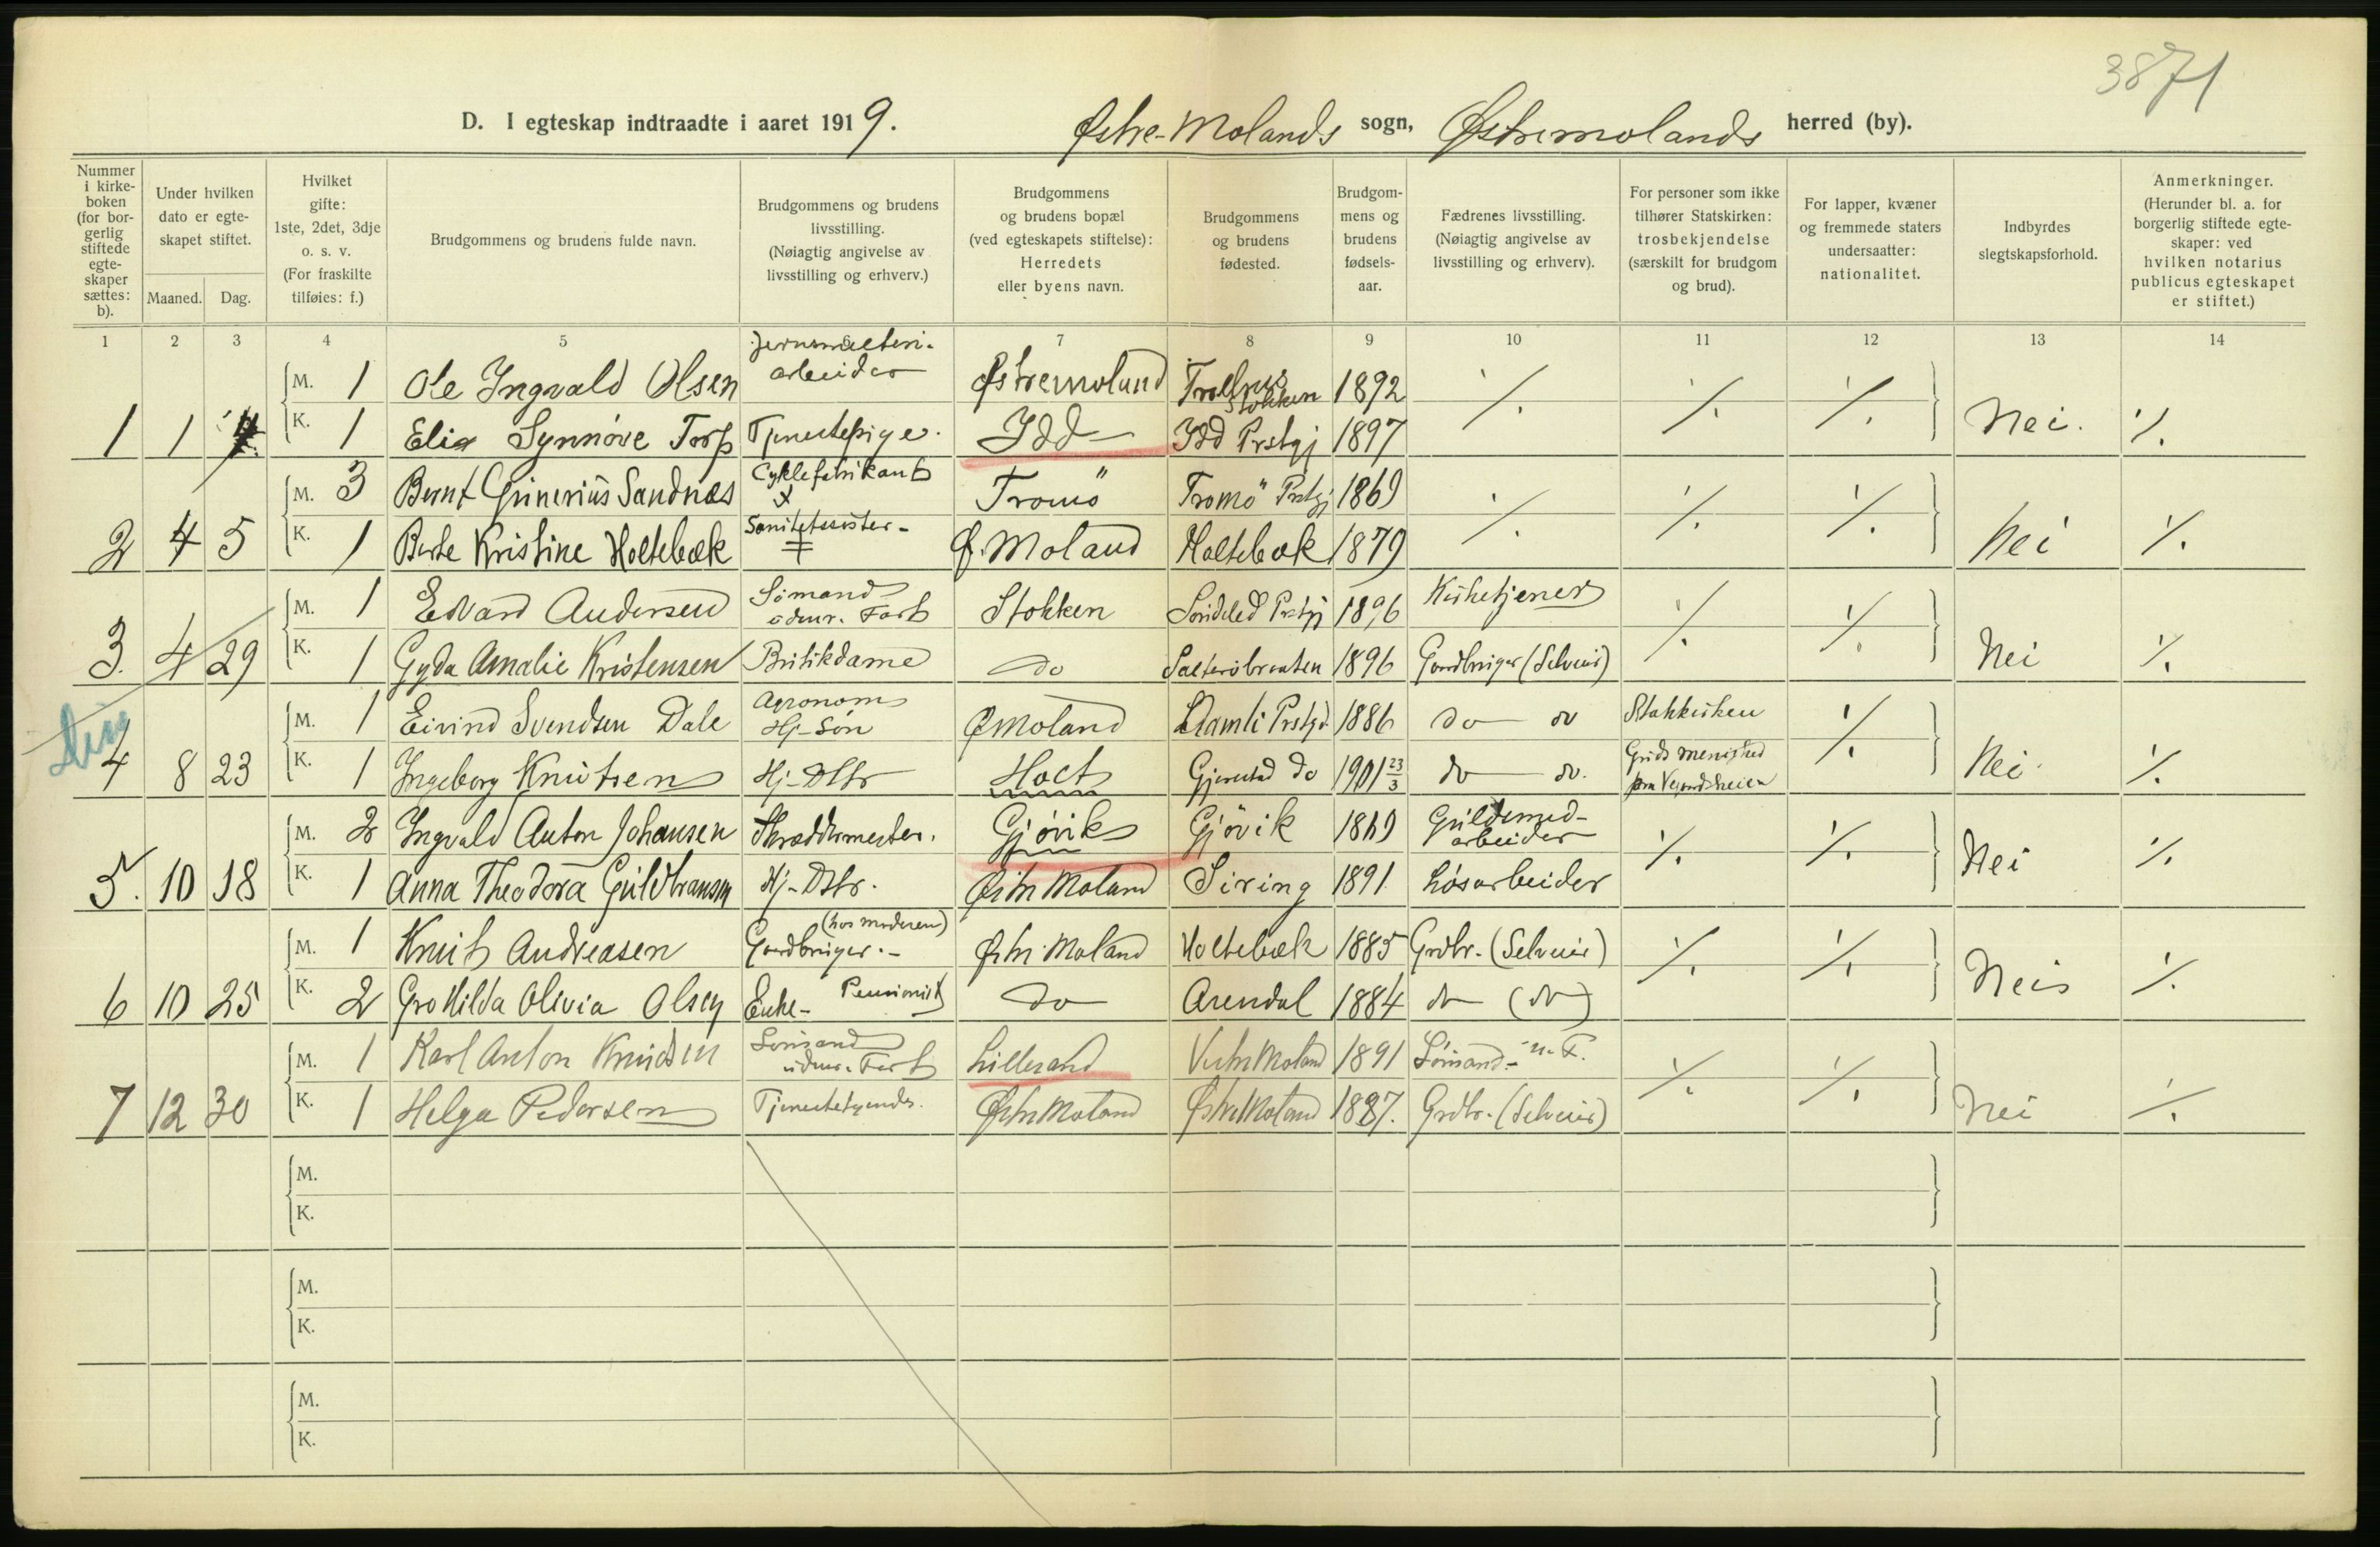 3871
D. I egteskap indtraadte i aaret 1919. Østre-Molands sogn, Østremolands herred (by).
Nummer i kirke-boken (for bor-gerlig stiftede egte-skaper sættes: b).
Under hvilken dato er egte-skapet stiftet.
Maaned. Dag.
Hvilket gifte: 1ste, 2det, 3dje o. s. v. (For fraskilte tilføies: f.)
Brudgommens og brudens fulde navn.
Brudgommens og brudens livsstilling. (Nøiagtig angivelse av livsstilling og erhverv.)
Brudgommens og brudens bopæl (ved egteskapets stiftelse): Herredets eller byens navn.
Brudgommens og brudens fødested.
Brudgom-mens og brudens fødsels-aar.
Fædrenes livsstilling. (Nøiagtig angivelse av livsstilling og erhverv).
For personer som ikke tilhører Statskirken: trosbekjendelse (særskilt for brudgom og brud).
For lapper, kvæner og fremmede staters undersaatter: nationalitet.
Indbyrdes slegtskapsforhold.
Anmerkninger. (Herunder bl. a. for borgerlig stiftede egte-skaper: ved hvilken notarius publicus egteskapet er stiftet.)
1 2 3 4 5 6 7 8 9 10 11 12 13 14
M. 1 Ole Ingvald Olsen Jernsmelteri-arbeider Østremoland Stokken 1892 ⁒ ⁒ ⁒
1 1 K. 1 Synnøve Torp Tjenestepige. Idd Idd Prstgj 1897 Nei. ⁒
M. 3 Bernt Gunerius Sandnæs Cyklefabrikant Tromö Tromö Prstgj 1869 ⁒ ⁒ ⁒
2 4 5 K. 1 Berte Kristine Holtebæk Sanitetssøster- Ø. Moland Holtebæk 1879 Nei ⁒
M. 1 Edvard Andersen Sömand udenr. Fart Stokken Söndeled Prstgj 1896 Kirketjener ⁒ ⁒
3. 4 29 K. 1 Gyda Amalie Kristensen Butikdame do 1896 Gaardbruger (Selveier) Nei ⁒
M. 1 Eivind Svendsen Dale Agronom Hj-Søn Ø Moland Aamli Prstgd 1886 do do Statskirken ⁒
4 8 23 K. 1 Ingeborg Knutsen Hj-Dttr Holt Gjerstad do 1901 23/3 do do. Nei ⁒
M. 2 Ingvald Anton Johansen Skræddermester. Gjövik Gjövik 1869 Guldsmed-arbeider ⁒ ⁒
5. 10 18 K. 1 Anna Theodora Guldbransen Hj-Dttr. Østre Moland 1891 Løsarbeider Nei ⁒
M. 1 Knut Andreasen Gaardbruger.- (hos moderen) Østr. Moland Holtebæk 1885 Grdbr. (Selveier) ⁒ ⁒
6 10 25 K. 2 Gro Hilda Olivia Olsen Enke- Pensionist do Arendal 1884 do (do) Nei ⁒
M. 1 Karl Anton Knudsen Sömand udenr. Fart Lillesand Vestre Moland 1891 Sömand- u. F. ⁒ ⁒
7 12 30 K. 1 Helga Pedersen Tjenestetyende. Østre Moland Østre Moland 1887. Grdbr. (Selveier) Nei ⁒
M.
K.
M.
K.
M.
K.